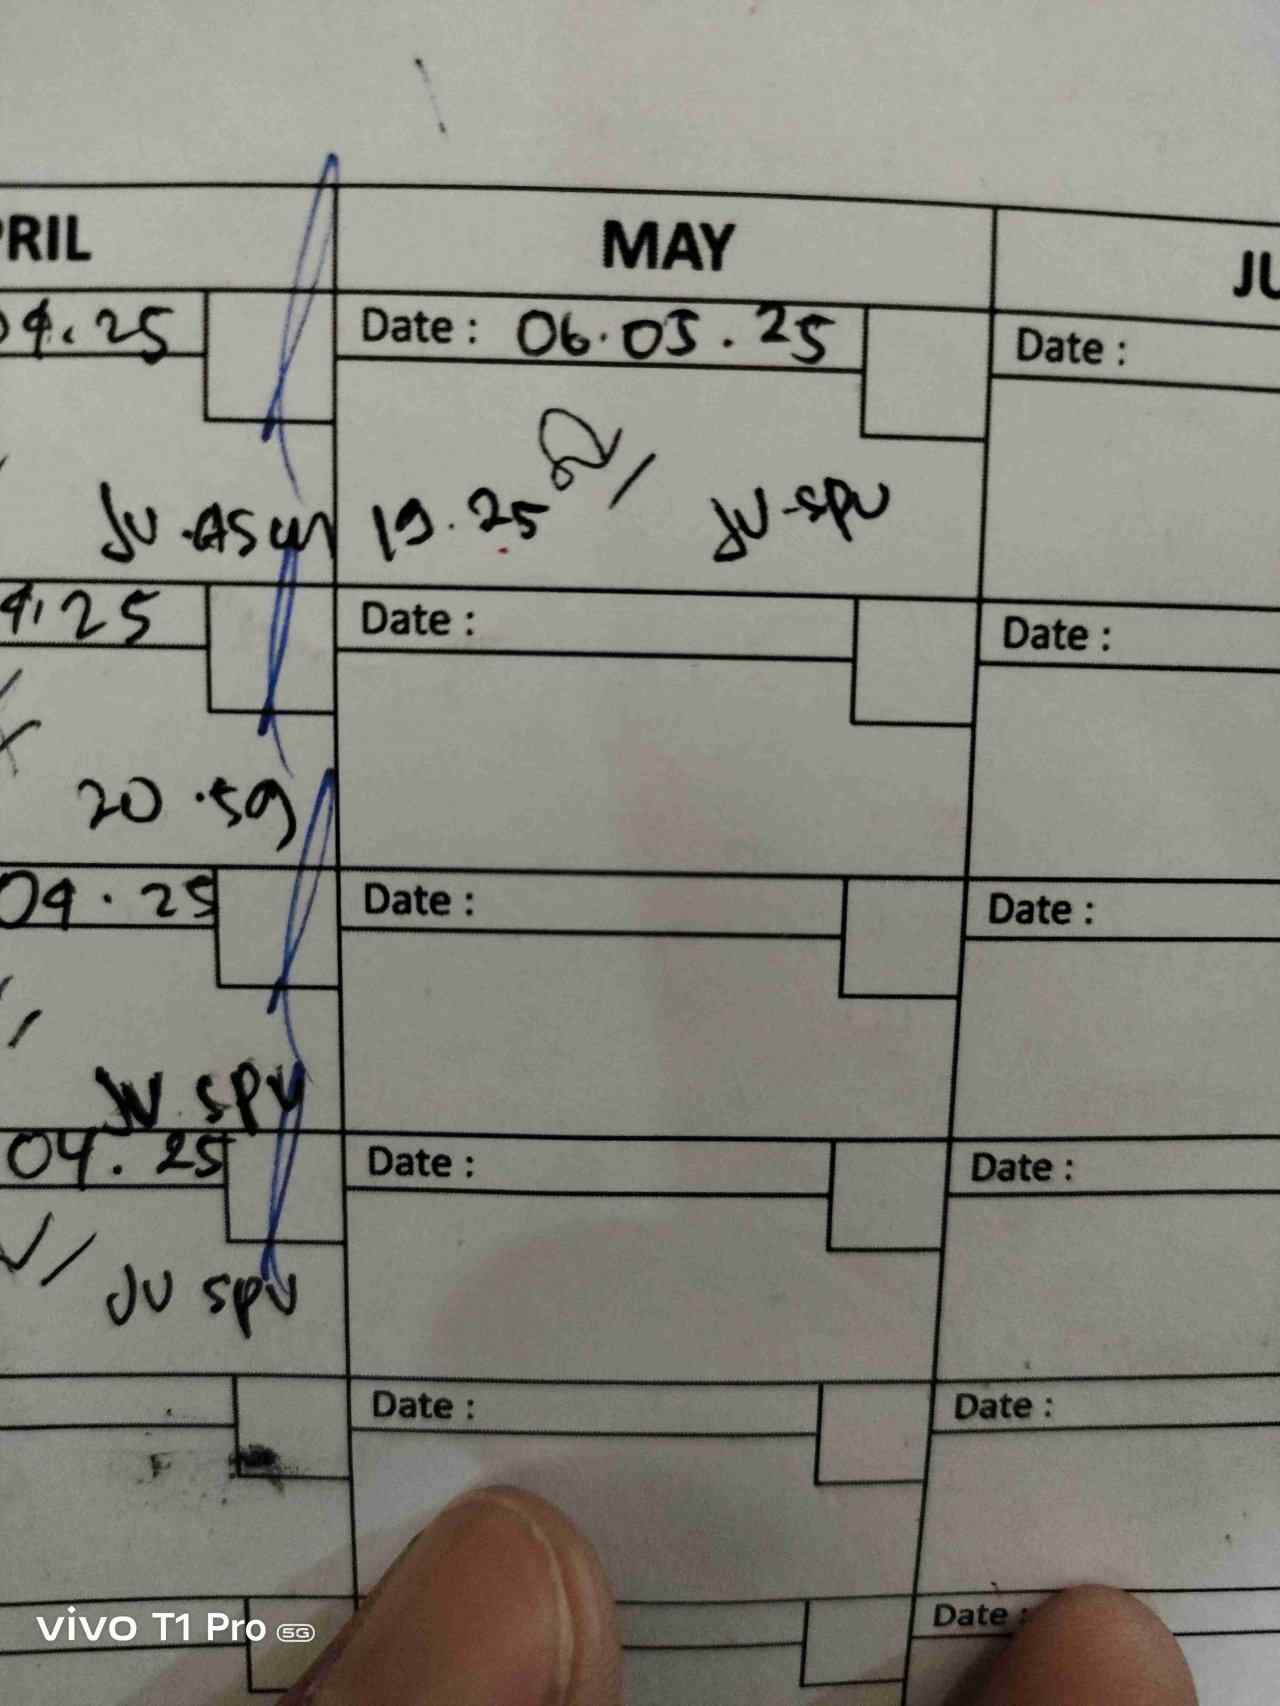 PRIL MAY JU
04.25 Date : 06.05.25 Date :
JU 19.25 JU-SPU
4.25 Date : Date :
20.59
04.25 Date : Date :
JU SPU
04.25 Date : Date :
JU SPU
Date : Date :
Date :
vivo T1 Pro 5G